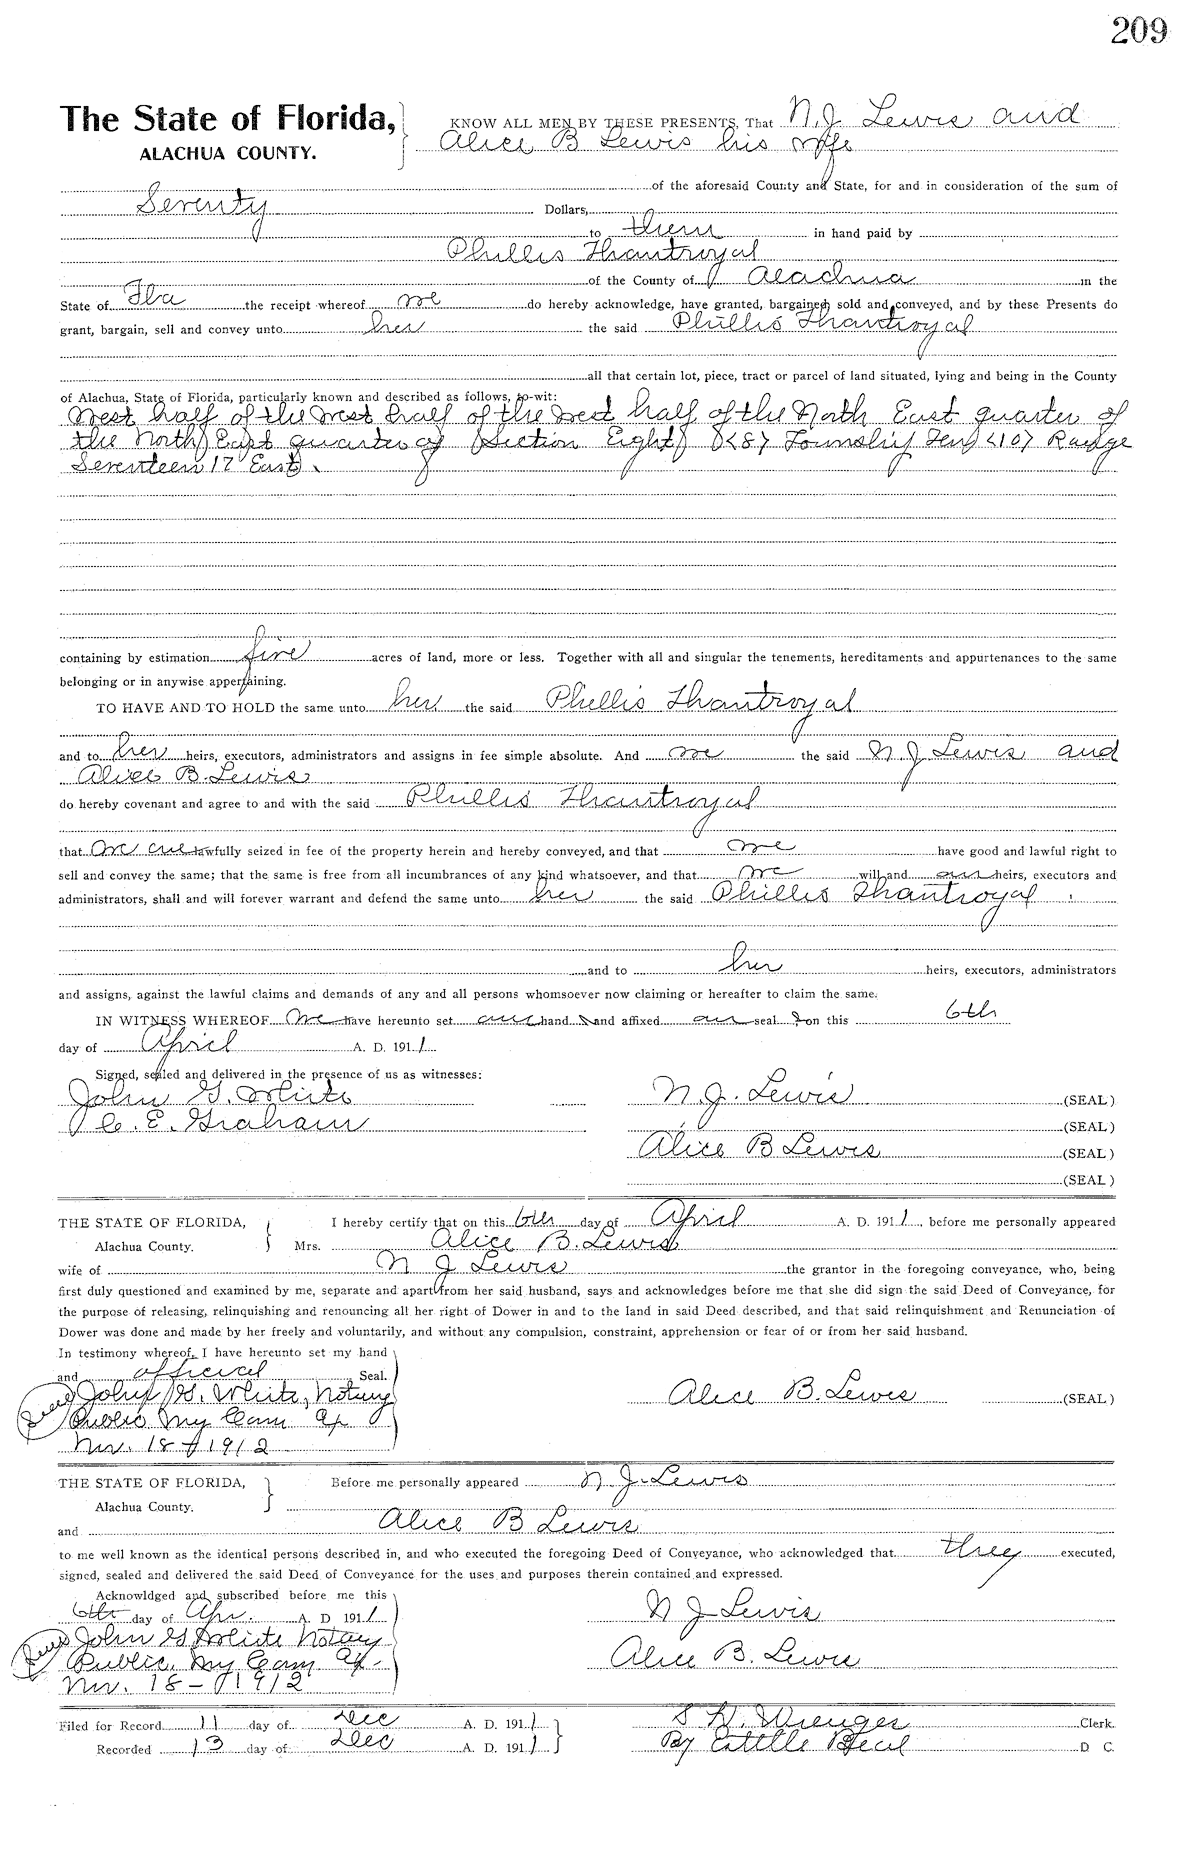 209
The State of Florida, KNOW ALL MEN BY THESE PRESENTS, That N. J. Lewis and
ALACHUA COUNTY. Alice B Lewis his wife
of the aforesaid County and State, for and in consideration of the sum of
Seventy Dollars,
to them in hand paid by
Phillis Thantroyal
of the County of Alachua in the
State of Fla the receipt whereof we do hereby acknowledge, have granted, bargained sold and conveyed, and by these Presents do
grant, bargain, sell and convey unto her the said Phillis Thantroyal
all that certain lot, piece, tract or parcel of land situated, lying and being in the County
of Alachua, State of Florida, particularly known and described as follows, to-wit:
West half of the West half of the West half of the North East quarter of
the North East quarter of Section Eight <8> Township Ten <10> Range
Seventeen 17 East.
containing by estimation five acres of land, more or less. Together with all and singular the tenements, hereditaments and appurtenances to the same
belonging or in anywise appertaining.
TO HAVE AND TO HOLD the same unto her the said Phillis Thantroyal
and to her heirs, executors, administrators and assigns in fee simple absolute. And we the said N. J Lewis and
Alice B. Lewis
do hereby covenant and agree to and with the said Phillis Thantroyal
that we are lawfully seized in fee of the property herein and hereby conveyed, and that we have good and lawful right to
sell and convey the same; that the same is free from all incumbrances of any kind whatsoever, and that we will and our heirs, executors and
administrators, shall and will forever warrant and defend the same unto her the said Phillis Thantroyal
and to her heirs, executors, administrators
and assigns, against the lawful claims and demands of any and all persons whomsoever now claiming or hereafter to claim the same.
IN WITNESS WHEREOF We have hereunto set our hand s and affixed our seal s on this 6th
day of April A. D. 191 1
Signed, sealed and delivered in the presence of us as witnesses:
John G. White N. J. Lewis (SEAL)
C. E. Graham (SEAL)
Alice B Lewis (SEAL)
(SEAL)
THE STATE OF FLORIDA, I hereby certify that on this 6th day of April A. D. 191 1, before me personally appeared
Alachua County. Mrs. Alice B. Lewis
wife of N J Lewis the grantor in the foregoing conveyance, who, being
first duly questioned and examined by me, separate and apart from her said husband, says and acknowledges before me that she did sign the said Deed of Conveyance, for
the purpose of releasing, relinquishing and renouncing all her right of Dower in and to the land in said Deed described, and that said relinquishment and Renunciation of
Dower was done and made by her freely and voluntarily, and without any compulsion, constraint, apprehension or fear of or from her said husband.
In testimony whereof, I have hereunto set my hand
and official Seal.
Seal John G. White, Notary Alice B. Lewis (SEAL)
Public My Com Ex
Nov. 18 - 1912
THE STATE OF FLORIDA, Before me personally appeared N. J. Lewis
Alachua County.
and Alice B Lewis
to me well known as the identical persons described in, and who executed the foregoing Deed of Conveyance, who acknowledged that they executed,
signed, sealed and delivered the said Deed of Conveyance for the uses and purposes therein contained and expressed.
Acknowldged and subscribed before me this
6th day of Apr. A. D 191 1 N J Lewis
Seal John G White Notary
Public. My Com Ex. Alice B. Lewis
Nov. 18 - 1912
Filed for Record 11 day of Dec A. D. 191 1 S. H. Wienges Clerk.
Recorded 13 day of Dec A. D. 191 1 By Estelle Beal D C.